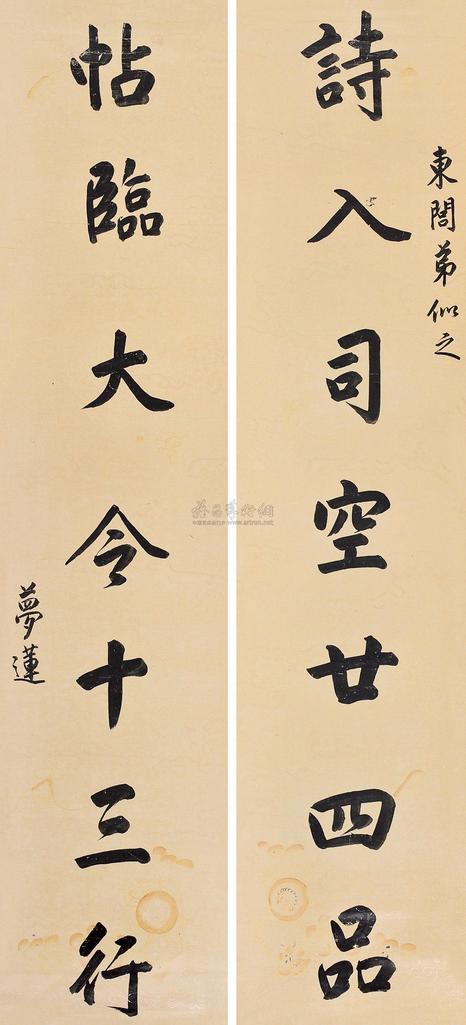 東閣弟似之
詩入司空廿四品
帖臨大令十三行
夢蓮
www.artron.net